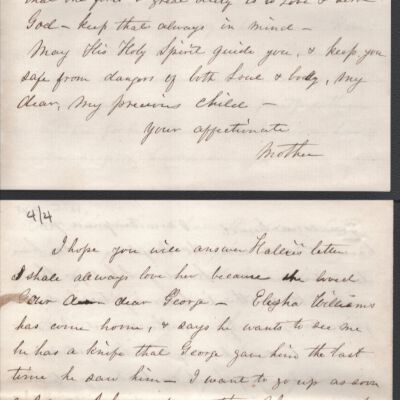 that our first & great duty is to love & serve
God - keep that always in mind -
May His Holy Spirit guide you, & keep you
safe from dangers of both Soul & body, my
dear, my precious child -
Your affectionate
Mother
4/4
I hope you will answer Hallie's letter
I shall always love her because she loved
our dear George - Elisha Williams
has come home, & says he wants to see me
he has a knife that George gave him the last
time he saw him - I want to go up as soon